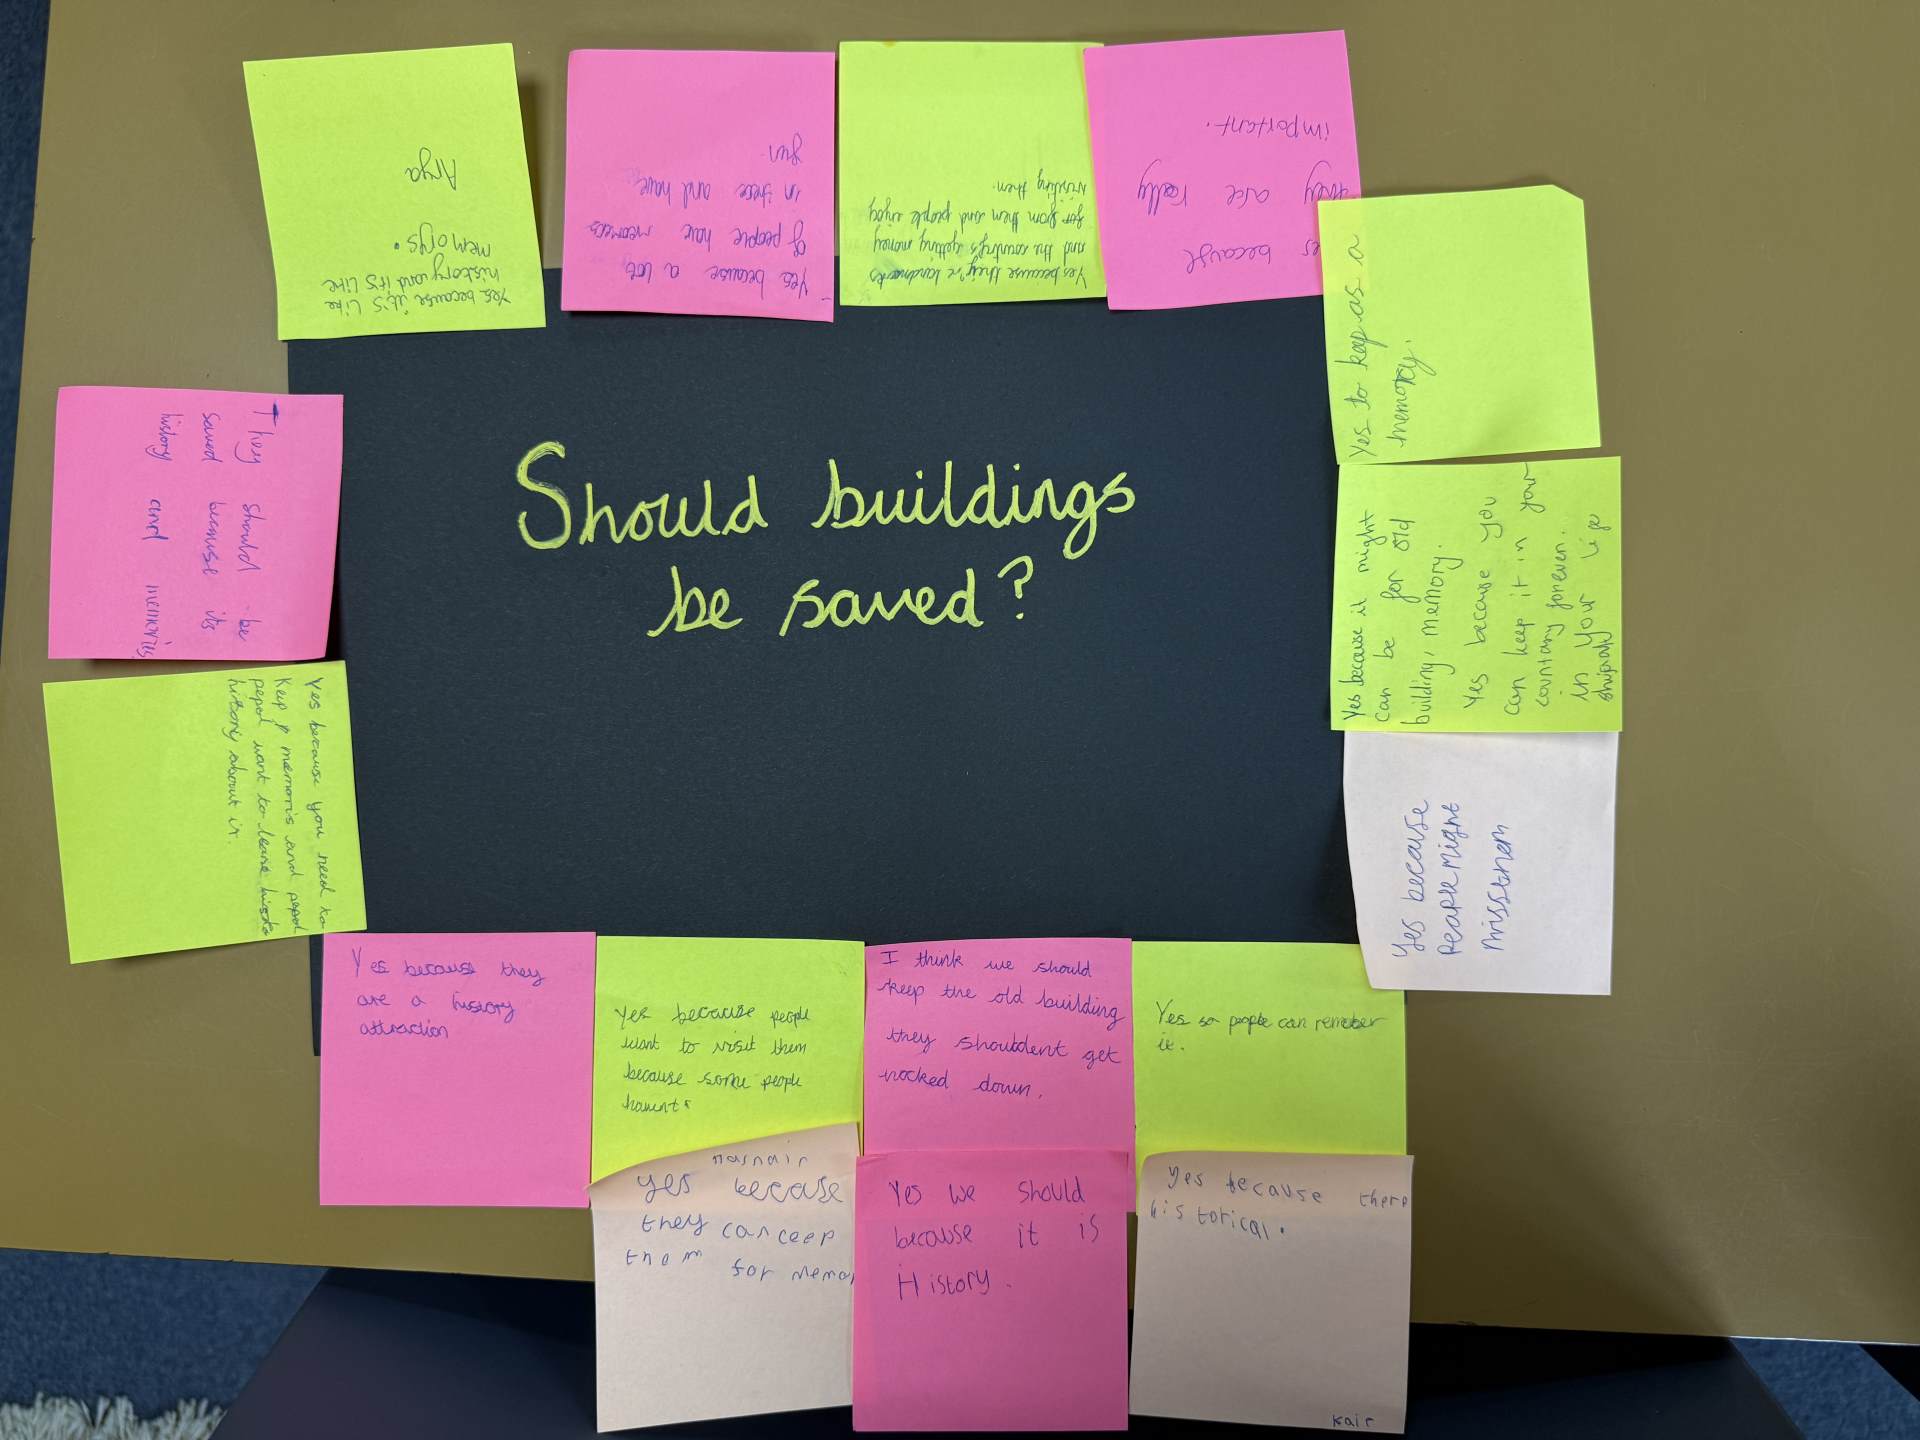 Should buildings
be saved?
Yes because it's like
history and it's like
memorys.
Arya
Yes because a lot
of people have
in there and have
fun
Yes because they're landmarks
and the country's getting money
from them and people enjoy
visiting them.
es because
they are really
important.
Yes to keep as a
memory.
Yes because it might
can be for old
building, memory.
Yes because you
can keep it in your
country forever.
in your
Yes because
People might
miss them
They should be
saved because its
history and memoris.
Yes because you need to
keep memoris and pepol
pepol want to
history about it.
Yes because they
are a history
attraction
Yes because people
want to visit them
because some people
havent.
I think we should
keep the old building
they shouldent get
nocked down.
Yes so people can remeber
it.
Hasnair
yes becase
they can ceep
them for memor
Yes we should
because it is
History.
Yes because there
historical.
kair